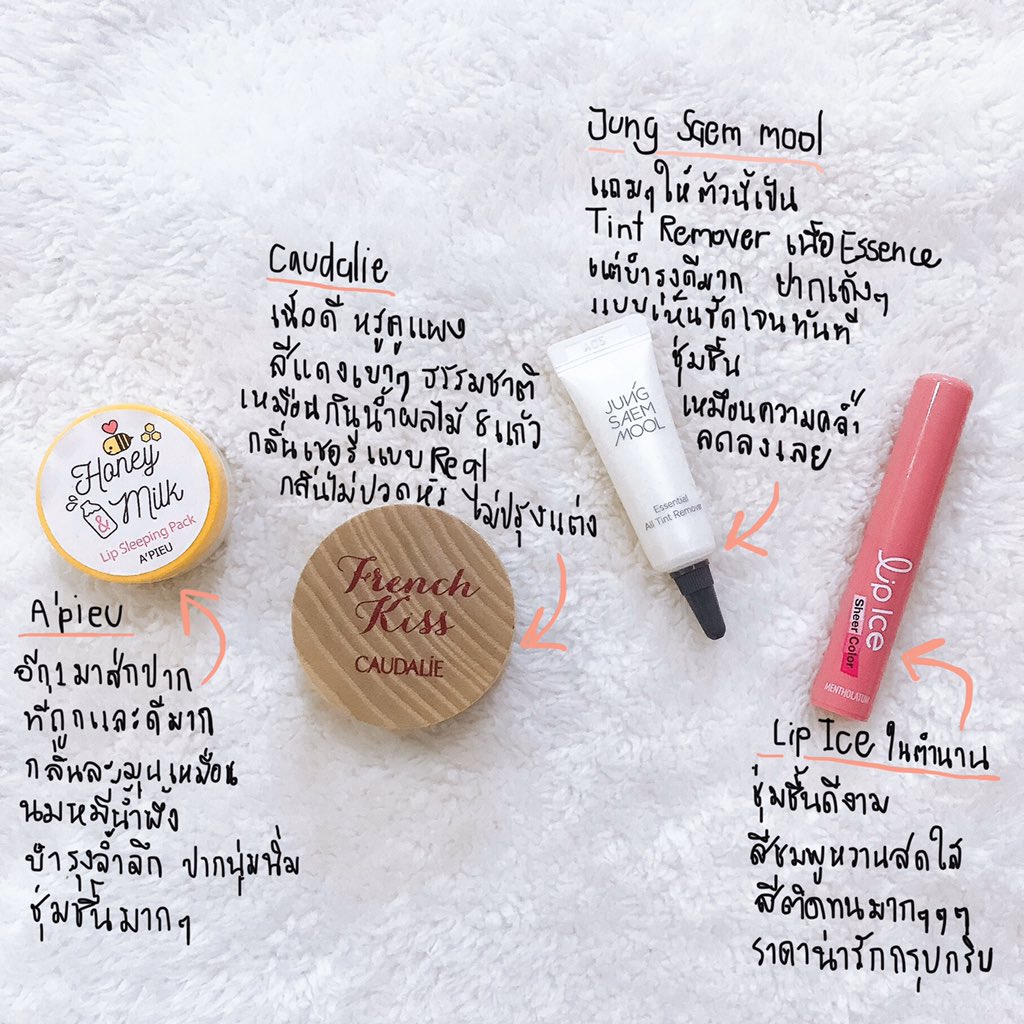 Jung Saem mool
แถมๆให้ ตัวนี้เป็น
Tint Remover เนื้อ Essence
แต่บำรุงดีมาก ปากเด้งๆ
แบบเห็นชัดเจนทันที
ชุ่มชื้น
เหมือนความคล้ำ
ลดลงเลย
Caudalie
เนื้อดี หรูดูแพง
สีแดงเบาๆ ธรรมชาติ
เหมือนกินน้ำผลไม้ 8 แก้ว
กลิ่นเชอรี่แบบ Real
กลิ่นไม่ปวดหัว ไม่ปรุงแต่ง
JUNG
SAEM
MOOL
Essential
All Tint Remover
Honey
& Milk
Lip Sleeping Pack
A'PIEU
French
Kiss
CAUDALIE
Lip Ice
Sheer Color
MENTHOLATUM
A'pieu
อีก 1 มาส์กปาก
ที่ถูกและดีมาก
กลิ่นละมุนเหมือน
นมหมีน้ำผึ้ง
บำรุงล้ำลึก ปากนุ่มนิ่ม
ชุ่มชื้นมากๆ
Lip Ice ในตำนาน
ชุ่มชื้นดีงาม
สีชมพูหวานสดใส
สีติดทนมากๆๆๆ
ราคาน่ารักกรุบกริบ